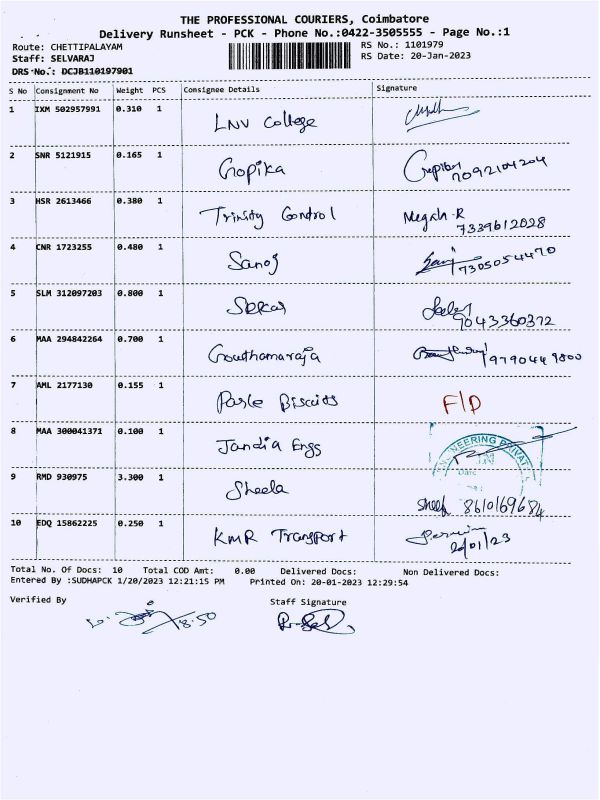 THE PROFESSIONAL COURIERS, Coimbatore
Delivery Runsheet - PCK - Phone No.:0422-3505555 - Page No.:1
Route: CHETTIPALAYAM RS No.: 1101979
Staff: SELVARAJ RS Date: 20-Jan-2023
DRS No.: DCJB110197901
S No Consignment No Weight PCS Consignee Details Signature
1 IXM 502957991 0.310 1 LNV College
2 SNR 5121915 0.165 1 Gopika 7092104204
3 HSR 2613466 0.380 1 Trinity Control Megah-R
7339612028
4 CNR 1723255 0.480 1 Sanoj 7305054470
5 SLM 312097203 0.800 1 Sekar
9043360372
6 MAA 294842264 0.700 1 Gouthamaraja 9790449800
7 AML 2177130 0.155 1 Parle Biscuits F/D
8 MAA 300041371 0.100 1 Jandia Engs
9 RMD 930975 3.300 1 Sheela 8610169684
10 EDQ 15862225 0.250 1 KMR Transport
20/01/23
Total No. Of Docs: 10 Total COD Amt: 0.00 Delivered Docs: Non Delivered Docs:
Entered By :SUDHAPCK 1/20/2023 12:21:15 PM Printed On: 20-01-2023 12:29:54
Verified By Staff Signature